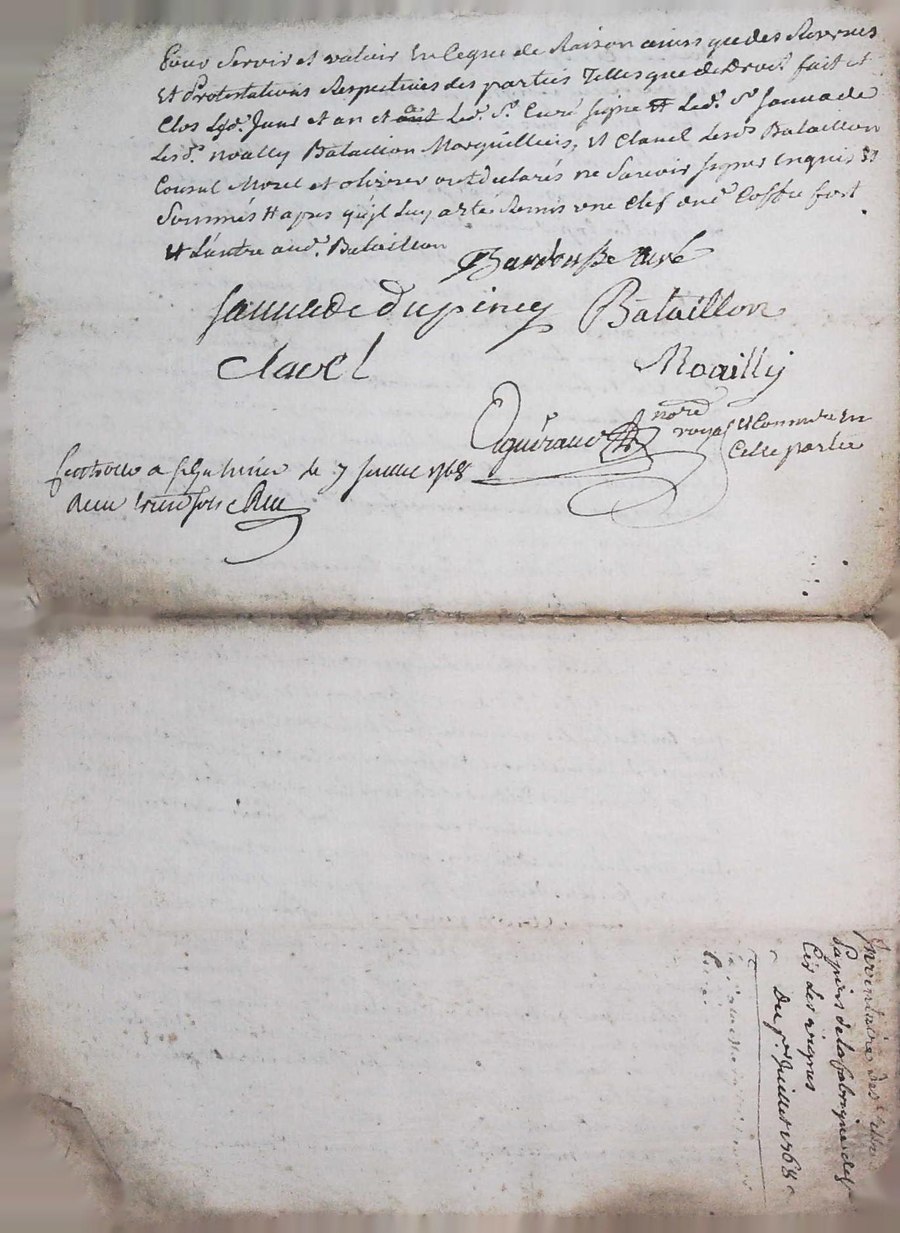 Pour Servir et valoir En Ce que de Raison ainsy que des Reserves
Et Protestations Respectives des parties Telles que de Droit fait et
Clos Lesd. Jour et an et a Led. Sr. Curé signé et Led. Sr. Sauvade
Lesd. Moailly Bataillon Marguilliers, et Clavel Lesd. Bataillon
Consul Morel et olivier ont declarés ne Savoir signer Enquis et
Sommés et apres qu'jl Luy a été Remis une Clef du. Coffre fort
et L'autre aud. Bataillon
curé
Sauvade Dupiney Bataillon
Clavel Moailly
nore
royal et Commre En
Cette partie
Controlé a le 7 Juillet 1768
Recu sols
Inventaire des titres
papiers de la fabrique de
Cir Les vignes
Du 1er. Juillet 1768